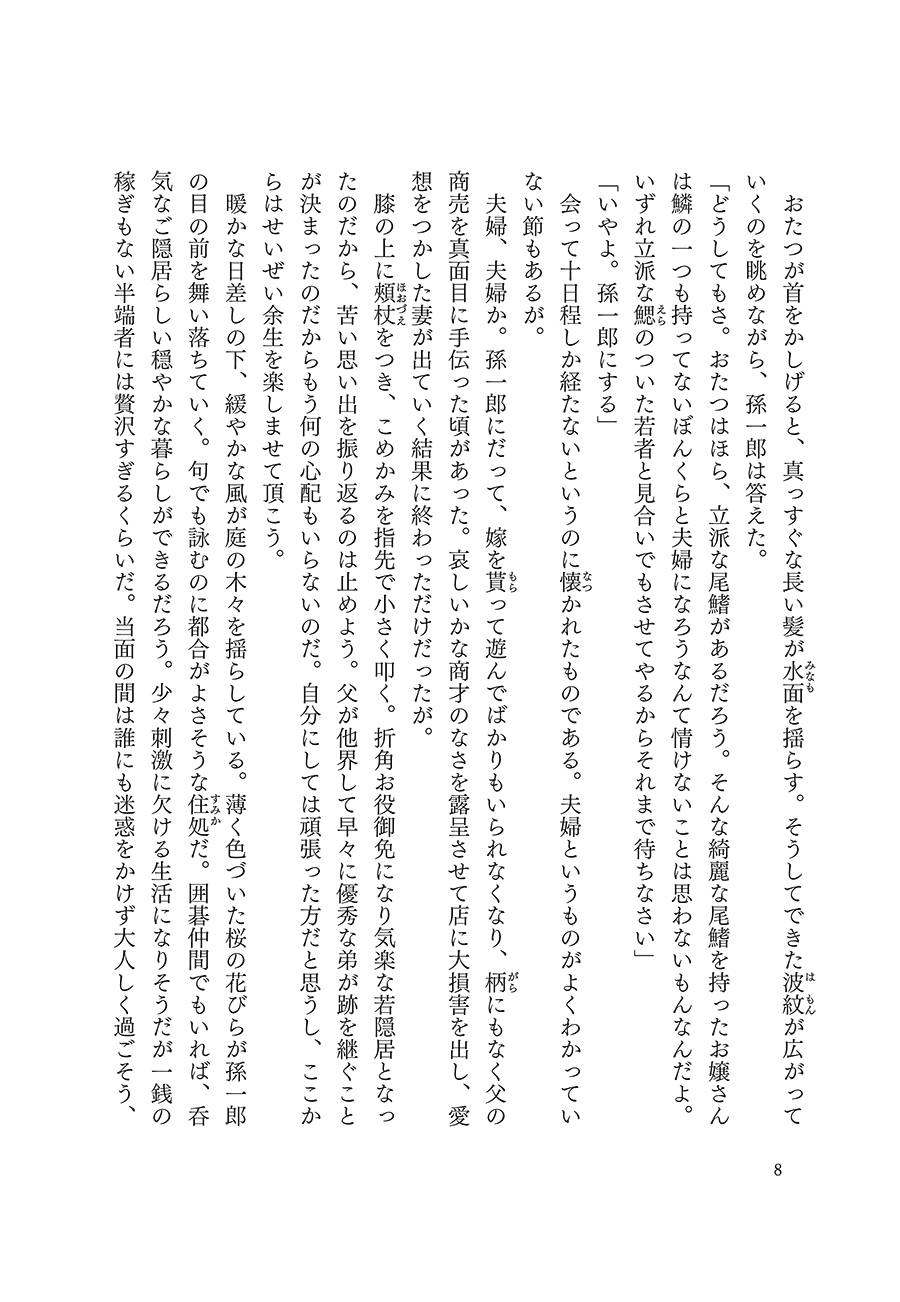 おたつが首をかしげると、真っすぐな長い髪が水面を揺らす。そうしてできた波紋が広がって
いくのを眺めながら、孫一郎は答えた。
「どうしてもさ。おたつはほら、立派な尾鰭があるだろう。そんな綺麗な尾鰭を持ったお嬢さん
は鱗の一つも持ってないぼんくらと夫婦になろうなんて情けないことは思わないもんなんだよ。
いずれ立派な鰓のついた若者と見合いでもさせてやるからそれまで待ちなさい」
「いやよ。孫一郎にする」
　会って十日程しか経たないというのに懐かれたものである。夫婦というものがよくわかってい
ない節もあるが。
　夫婦、夫婦か。孫一郎にだって、嫁を貰って遊んでばかりもいられなくなり、柄にもなく父の
商売を真面目に手伝った頃があった。哀しいかな商才のなさを露呈させて店に大損害を出し、愛
想をつかした妻が出ていく結果に終わっただけだったが。
　膝の上に頬杖をつき、こめかみを指先で小さく叩く。折角お役御免になり気楽な若隠居となっ
たのだから、苦い思い出を振り返るのは止めよう。父が他界して早々に優秀な弟が跡を継ぐこと
が決まったのだからもう何の心配もいらないのだ。自分にしては頑張った方だと思うし、ここか
らはせいぜい余生を楽しませて頂こう。
　暖かな日差しの下、緩やかな風が庭の木々を揺らしている。薄く色づいた桜の花びらが孫一郎
の目の前を舞い落ちていく。句でも詠むのに都合がよさそうな住処だ。囲碁仲間でもいれば、呑
気なご隠居らしい穏やかな暮らしができるだろう。少々刺激に欠ける生活になりそうだが一銭の
稼ぎもない半端者には贅沢すぎるくらいだ。当面の間は誰にも迷惑をかけず大人しく過ごそう、
8